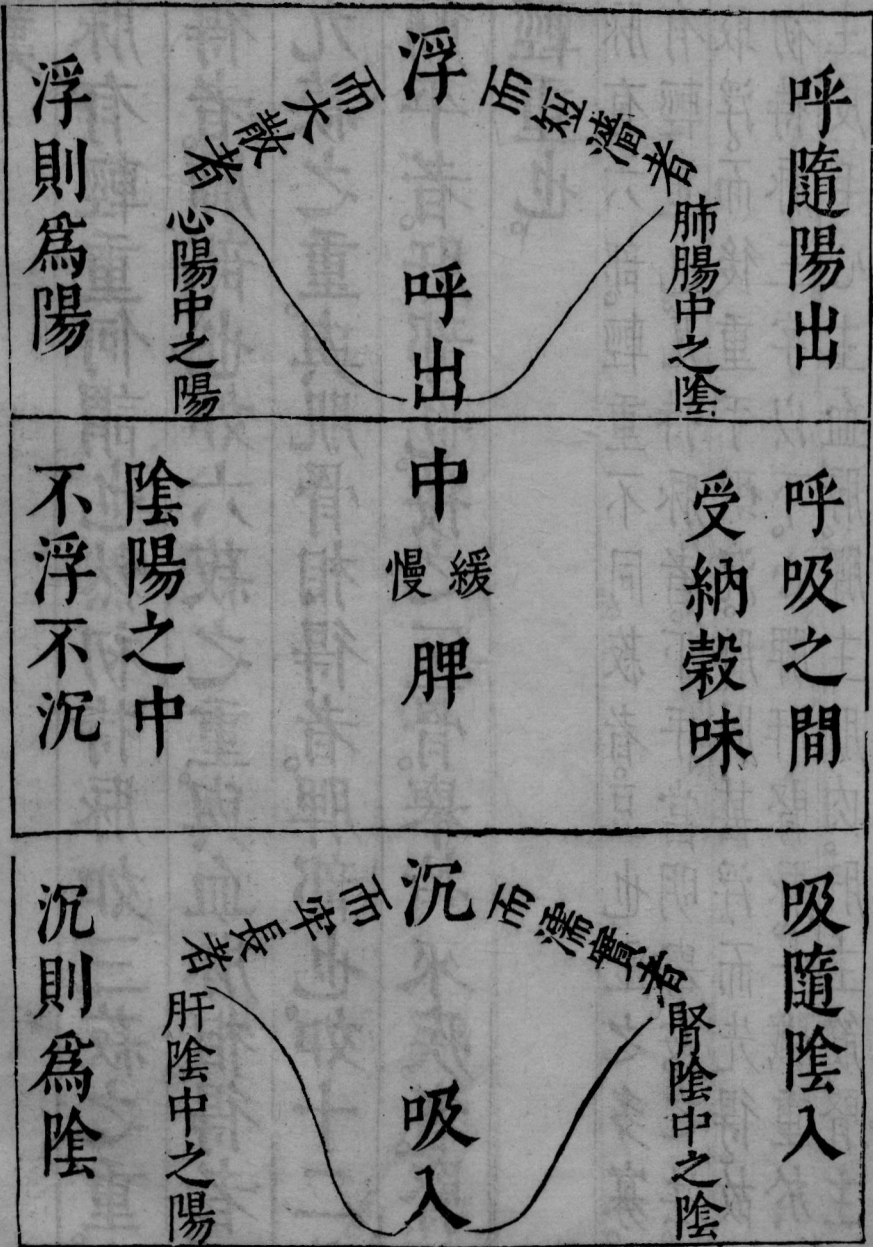 呼隨陽出
浮
而短濇者
肺腸中之陰
呼出
而大散者
心陽中之陽
浮則爲陽
呼吸之間
受納穀味
中
緩慢
脾
陰陽之中
不浮不沉
吸隨陰入
沉
而濡實者
腎陰中之陰
吸入
而牢長者
肝陰中之陽
沉則爲陰